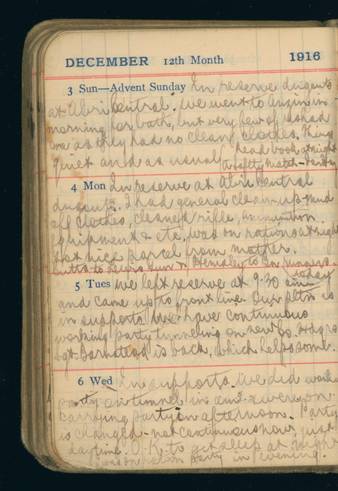 DECEMBER 12th Month 1916
3 Sun—Advent Sunday In reserve dugouts
at Abri Central. We went to in
morning for bath, but very few of us had
one as they had no clean clothes. Things
quiet and as usual. read book at night
4 Mon In reserve at Abri Central
dugouts. I had general clean-up mend
of clothes, cleaned rifle, ammunition
equipment & etc, was on rations at night
Got nice parcel from mother.
5 Tues We left reserve at 9.30 am today
and came up to front line. Our pltn is
in supports. We have continuous
working party tunneling on new Co. Hdqrs
Sgt. is back, which helps some.
6 Wed In supports. We did work
party on tunnel in am & were on
carrying party in afternoon. Party
is changed - not continuous now, just
daytime. O.K. to get sleep at night
was on ration party in evening.